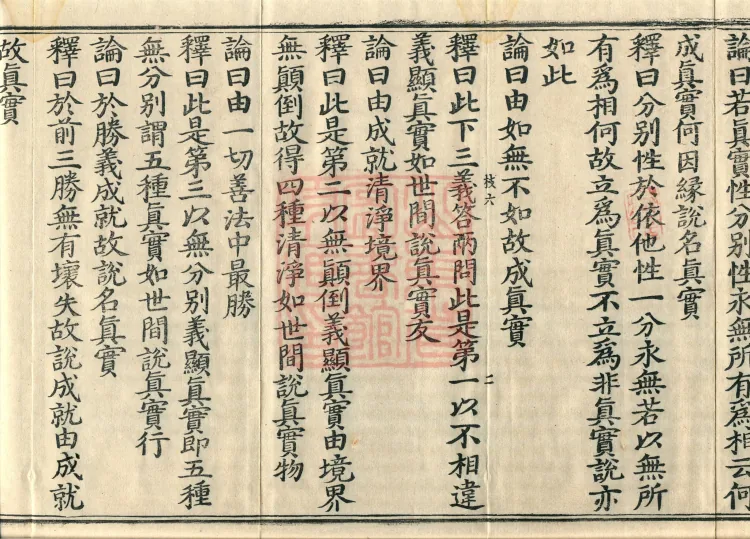 論曰若眞實性分別性永無所有爲相云何
成眞實何因緣說名眞實
釋曰分別性於依他性一分永無若以無所
有爲相何故立爲眞實不立爲非眞實說亦
如此
論曰由如無不如故成眞實
釋曰此下三義答兩問此是第一以不相違
義顯眞實如世間說眞實友
論曰由成就清淨境界
釋曰此是第二以無顛倒義顯眞實由境界
無顛倒故得四種清淨如世間說眞實物
論曰由一切善法中最勝
釋曰此是第三以無分別義顯眞實即五種
無分別謂五種眞實如世間說眞實行
論曰於勝義成就故說名眞實
釋曰於前三勝無有壞失故說成就由成就
故眞實